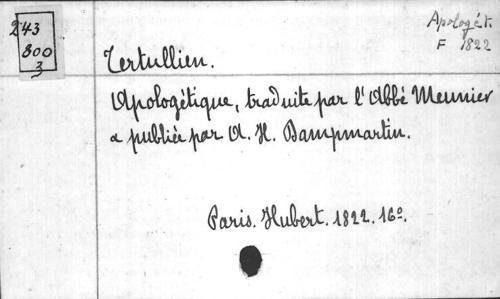 243
800
3
Apologét.
F 1822
Tertullien.
Apologétique, traduite par l'Abbé Meunier
& publiée par A. H. Dampmartin.
Paris. Hubert. 1822. 16º.